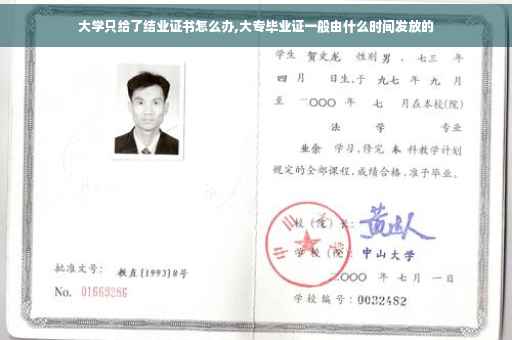 大学只给了结业证书怎么办,大专毕业证一般由什么时间发放的
学生 贺文龙 性别 男 、七三 年
四 月 日生,于 九七 年 九 月
至 二〇〇〇 年 七 月在本校(院)
法 学 专业
业余 学习,修完 本 科教学计划
规定的全部课程,成绩合格,准予毕业。
校(院)长:
学校(院): 中山大学
二〇〇〇 年 七 月 一 日
批准文号: 教直[1993]8号
No. 01669286
学校编号: 0032482